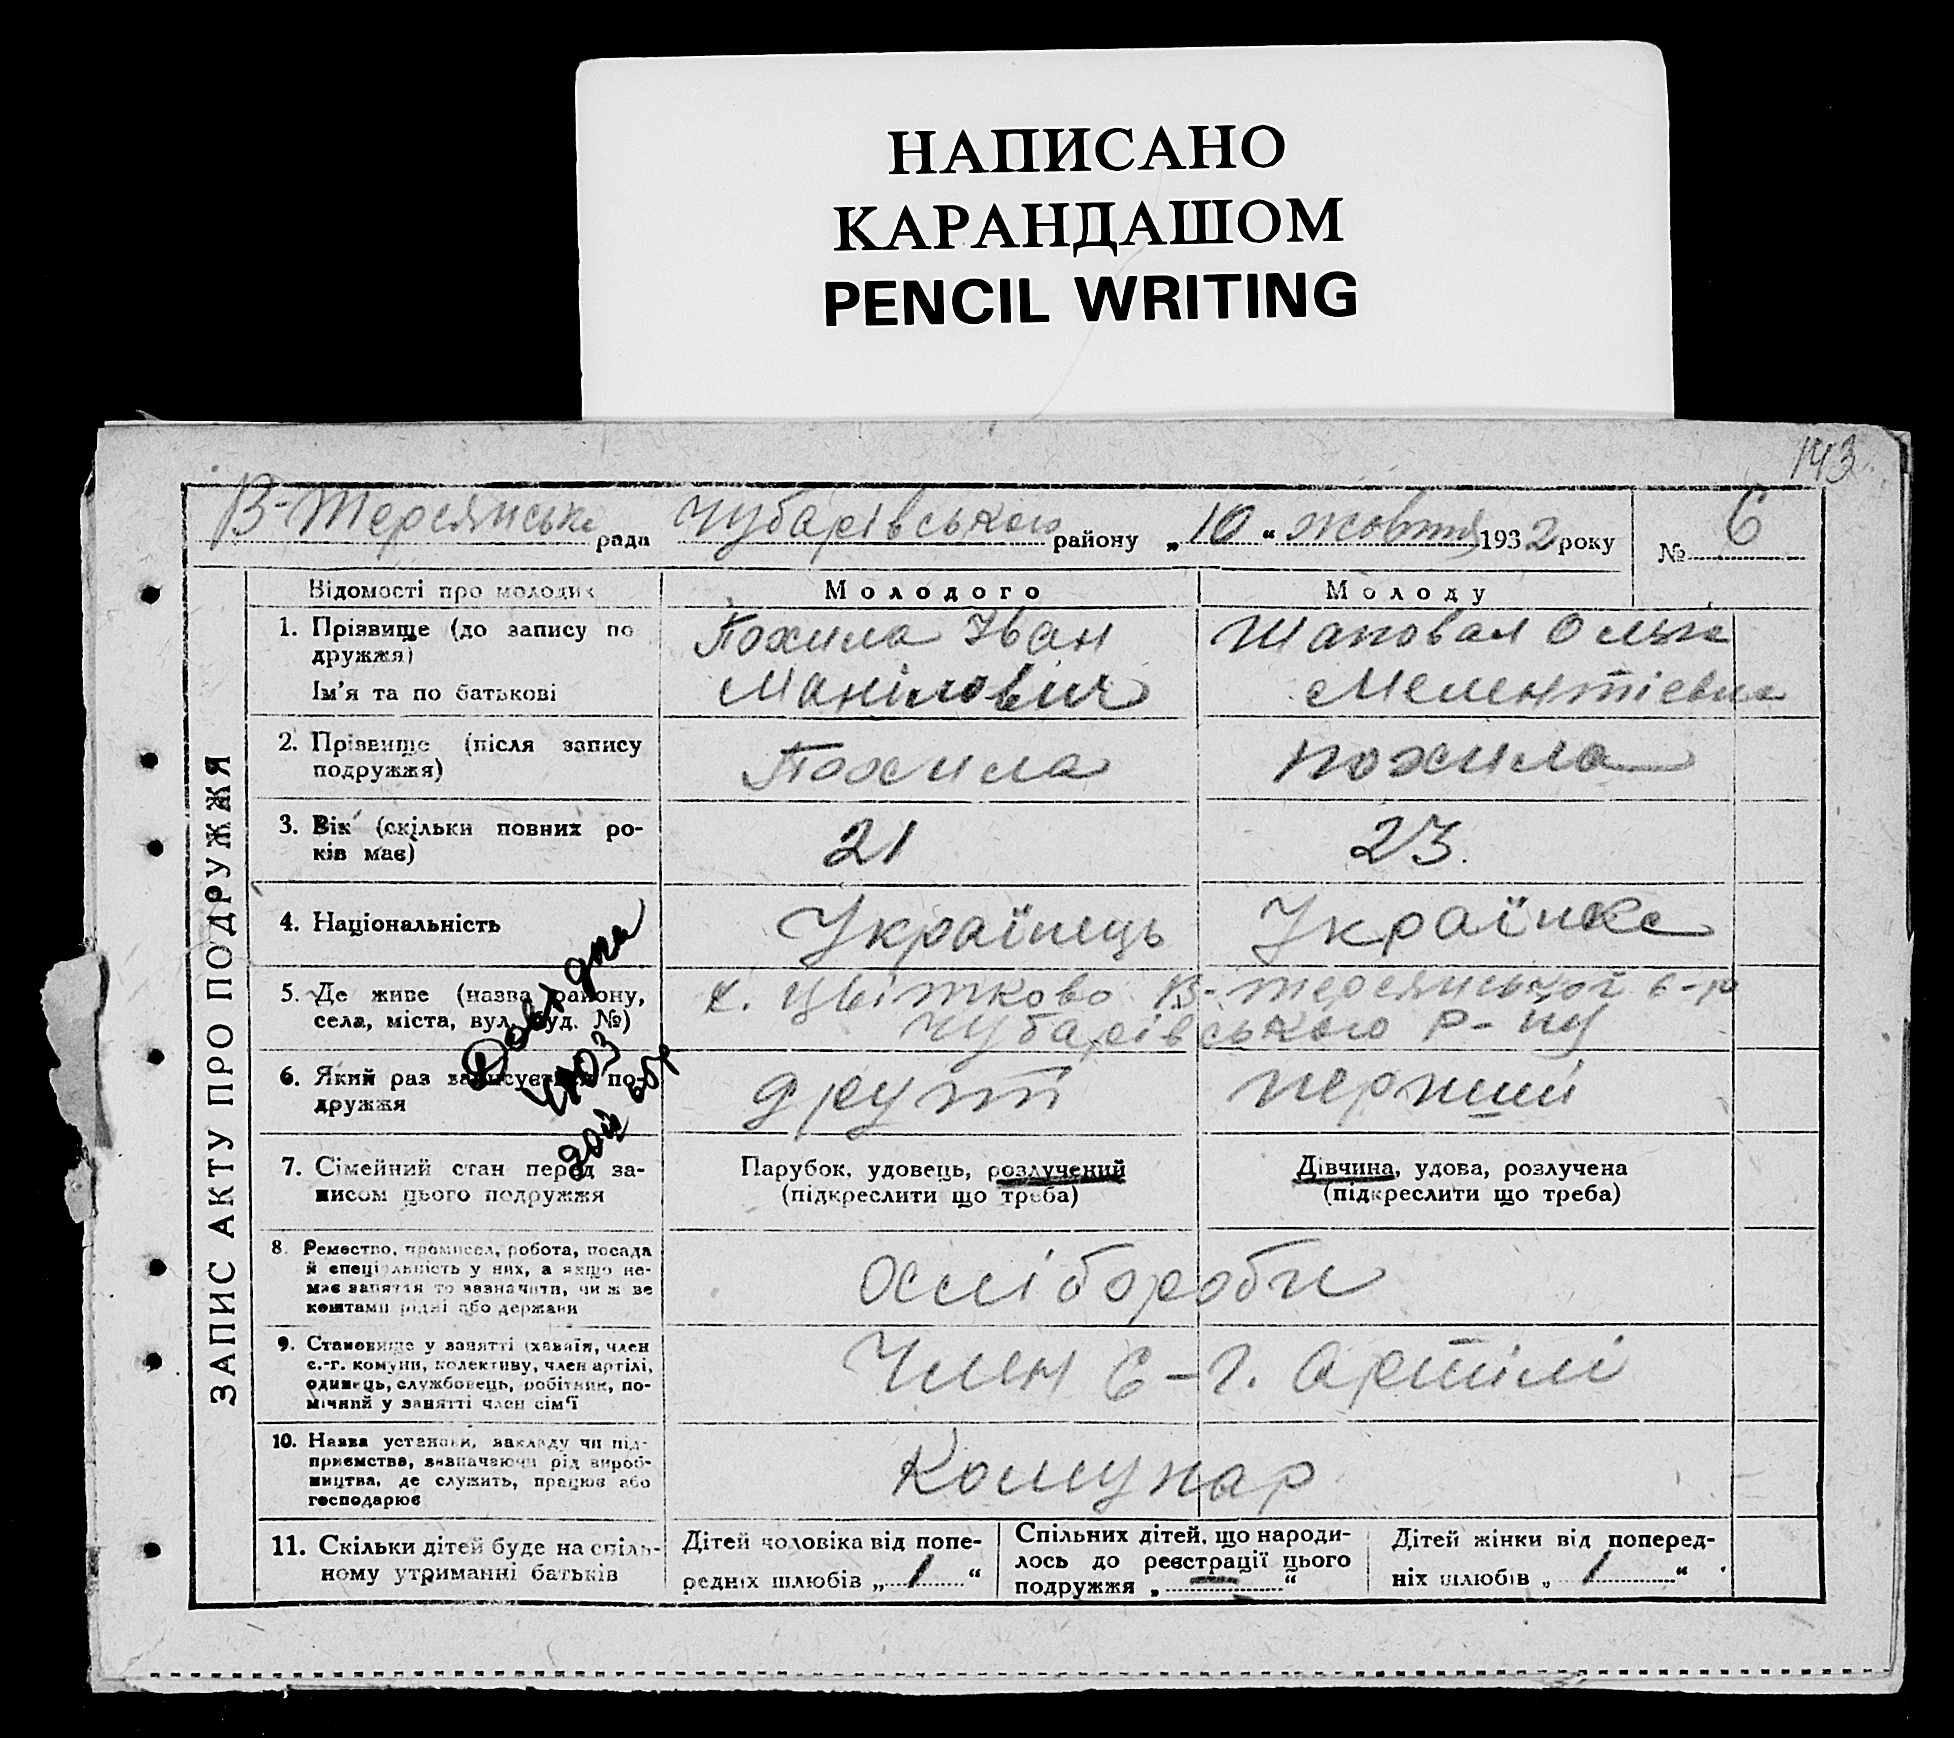 НАПИСАНО
КАРАНДАШОМ
PENCIL WRITING
143.
В-Терсянська рада Чубарівського району „10“ жовтня 1932 року № 6
ЗАПИС АКТУ ПРО ПОДРУЖЖЯ
Відомості про молодих Молодого Молоду
1. Прізвище (до запису по Похила Іван Шаповал Ольга
дружжя)
Ім'я та по батькові Манілович Мелентіевна
2. Прізвище (після запису Похила похила
подружжя)
3. Вік (скільки повних ро- 21 23.
ків має)
4. Національність Українець Українка
5. Де живе (назва району, х. Цвітково В-терсянської с-р
села, міста, вул. буд. №) Чубарівського р-ну
6. Який раз записується по- другі перший
дружжя
7. Сімейний стан перед за- Парубок, удовець, розлучений Дівчина, удова, розлучена
писом цього подружжя (підкреслити що треба) (підкреслити що треба)
8. Ремество, промисел, робота, посада
й спеціяльність у них, а якщо не-
має заняття то зазначити, чиж ве
коштами рідні або держави
Осліборобч
9. Становище у занятті (хазяїн, член
с.-г. комуни, колективу, член артілі,
одинець, службовець, робітник, по-
мічний у занятті член сім'ї
Член с-г. артілі
10. Назва установи, закладу чи під-
приємства, зазначаючи рід вироб-
ництва, де служить, працює або
господарює
Комунар
11. Скільки дітей буде на спіль-
ному утриманні батьків
Дітей чоловіка від попе-
редніх шлюбів „1“
Спільних дітей, що народи-
лось до реєстрації цього
подружжя „—“
Дітей жінки від поперед-
ніх шлюбів „1“